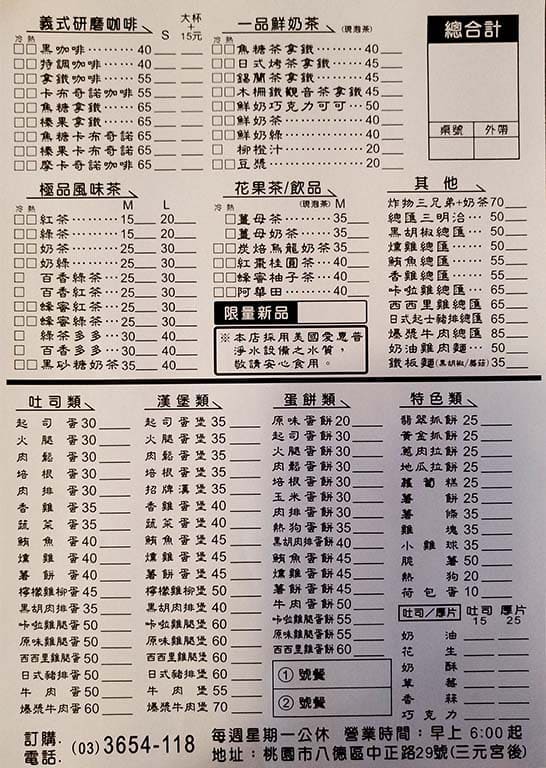 義式研磨咖啡 S 大杯+15元
冷 熱
黑咖啡 40
特調咖啡 45
拿鐵咖啡 55
卡布奇諾咖啡 55
焦糖拿鐵 65
榛果拿鐵 65
焦糖卡布奇諾 65
榛果卡布奇諾 65
摩卡奇諾咖啡 65
一品鮮奶茶 (現泡茶)
冷 熱
焦糖茶拿鐵 45
日式烤茶拿鐵 45
錫蘭茶拿鐵 45
木柵鐵觀音茶拿鐵 45
鮮奶巧克力可可 50
鮮奶茶 40
鮮奶綠 40
柳橙汁 20
豆漿 20
總合計
桌號 外帶
極品風味茶
冷 熱 M L
紅茶 15 20
綠茶 15 20
奶茶 25 30
奶綠 25 30
百香綠茶 25 30
百香紅茶 25 30
蜂蜜紅茶 25 30
蜂蜜綠茶 25 30
綠茶多多 30 40
百香多多 30 40
黑砂糖奶茶 35 40
花果茶/飲品
冷 熱 (現泡茶) M
薑母茶 35
薑母奶茶 35
炭焙烏龍奶茶 35
紅棗桂圓茶 40
蜂蜜柚子茶 40
阿華田 40
限量新品
※本店採用美國愛惠普
淨水設備之水質，
敬請安心食用。
其他
炸物三兄弟+奶茶 70
總匯三明治 50
黑胡椒總匯 50
燻雞總匯 50
鮪魚總匯 55
香雞總匯 55
咔啦雞總匯 65
西西里雞總匯 65
日式起士豬排總匯 65
爆漿牛肉總匯 85
奶油雞肉麵 50
鐵板麵(黑胡椒/蘑菇) 35
吐司類
起司蛋 30
火腿蛋 30
肉鬆蛋 30
培根蛋 30
肉排蛋 30
香雞蛋 35
蔬菜蛋 35
鮪魚蛋 40
燻雞蛋 40
薯餅蛋 40
檸檬雞柳蛋 45
黑胡肉排蛋 35
咔啦雞腿蛋 50
原味雞腿蛋 50
西西里雞腿蛋 50
日式豬排蛋 50
牛肉蛋 50
爆漿牛肉蛋 60
漢堡類
起司蛋堡 35
火腿蛋堡 35
肉鬆蛋堡 35
培根蛋堡 35
招牌漢堡 35
香雞蛋堡 40
蔬菜蛋堡 40
鮪魚蛋堡 45
燻雞蛋堡 45
薯餅蛋堡 45
檸檬雞柳堡 45
黑胡肉排堡 40
咔啦雞腿堡 60
原味雞腿堡 60
西西里雞腿堡 60
日式豬排堡 60
牛肉堡 55
爆漿牛肉堡 70
蛋餅類
原味蛋餅 20
起司蛋餅 30
火腿蛋餅 30
肉鬆蛋餅 30
培根蛋餅 30
玉米蛋餅 30
肉排蛋餅 30
熱狗蛋餅 35
黑胡肉排蛋餅 40
鮪魚蛋餅 45
燻雞蛋餅 45
薯餅蛋餅 45
牛肉蛋餅 50
咔啦雞腿蛋餅 55
原味雞腿蛋餅 55
西西里雞蛋餅 60
① 號餐
② 號餐
特色類
翡翠抓餅 25
黃金抓餅 25
蔥肉拉餅 25
地瓜拉餅 25
蘿蔔糕 25
薯餅 25
薯條 35
雞塊 35
小雞球 35
脆薯 50
熱狗 20
荷包蛋 10
吐司/厚片 吐司 15 厚片 25
奶油
花生
奶酥
草莓
香蒜
巧克力
訂購電話. (03) 3654-118
每週星期一公休 營業時間：早上 6:00 起
地址：桃園市八德區中正路29號(三元宮後)